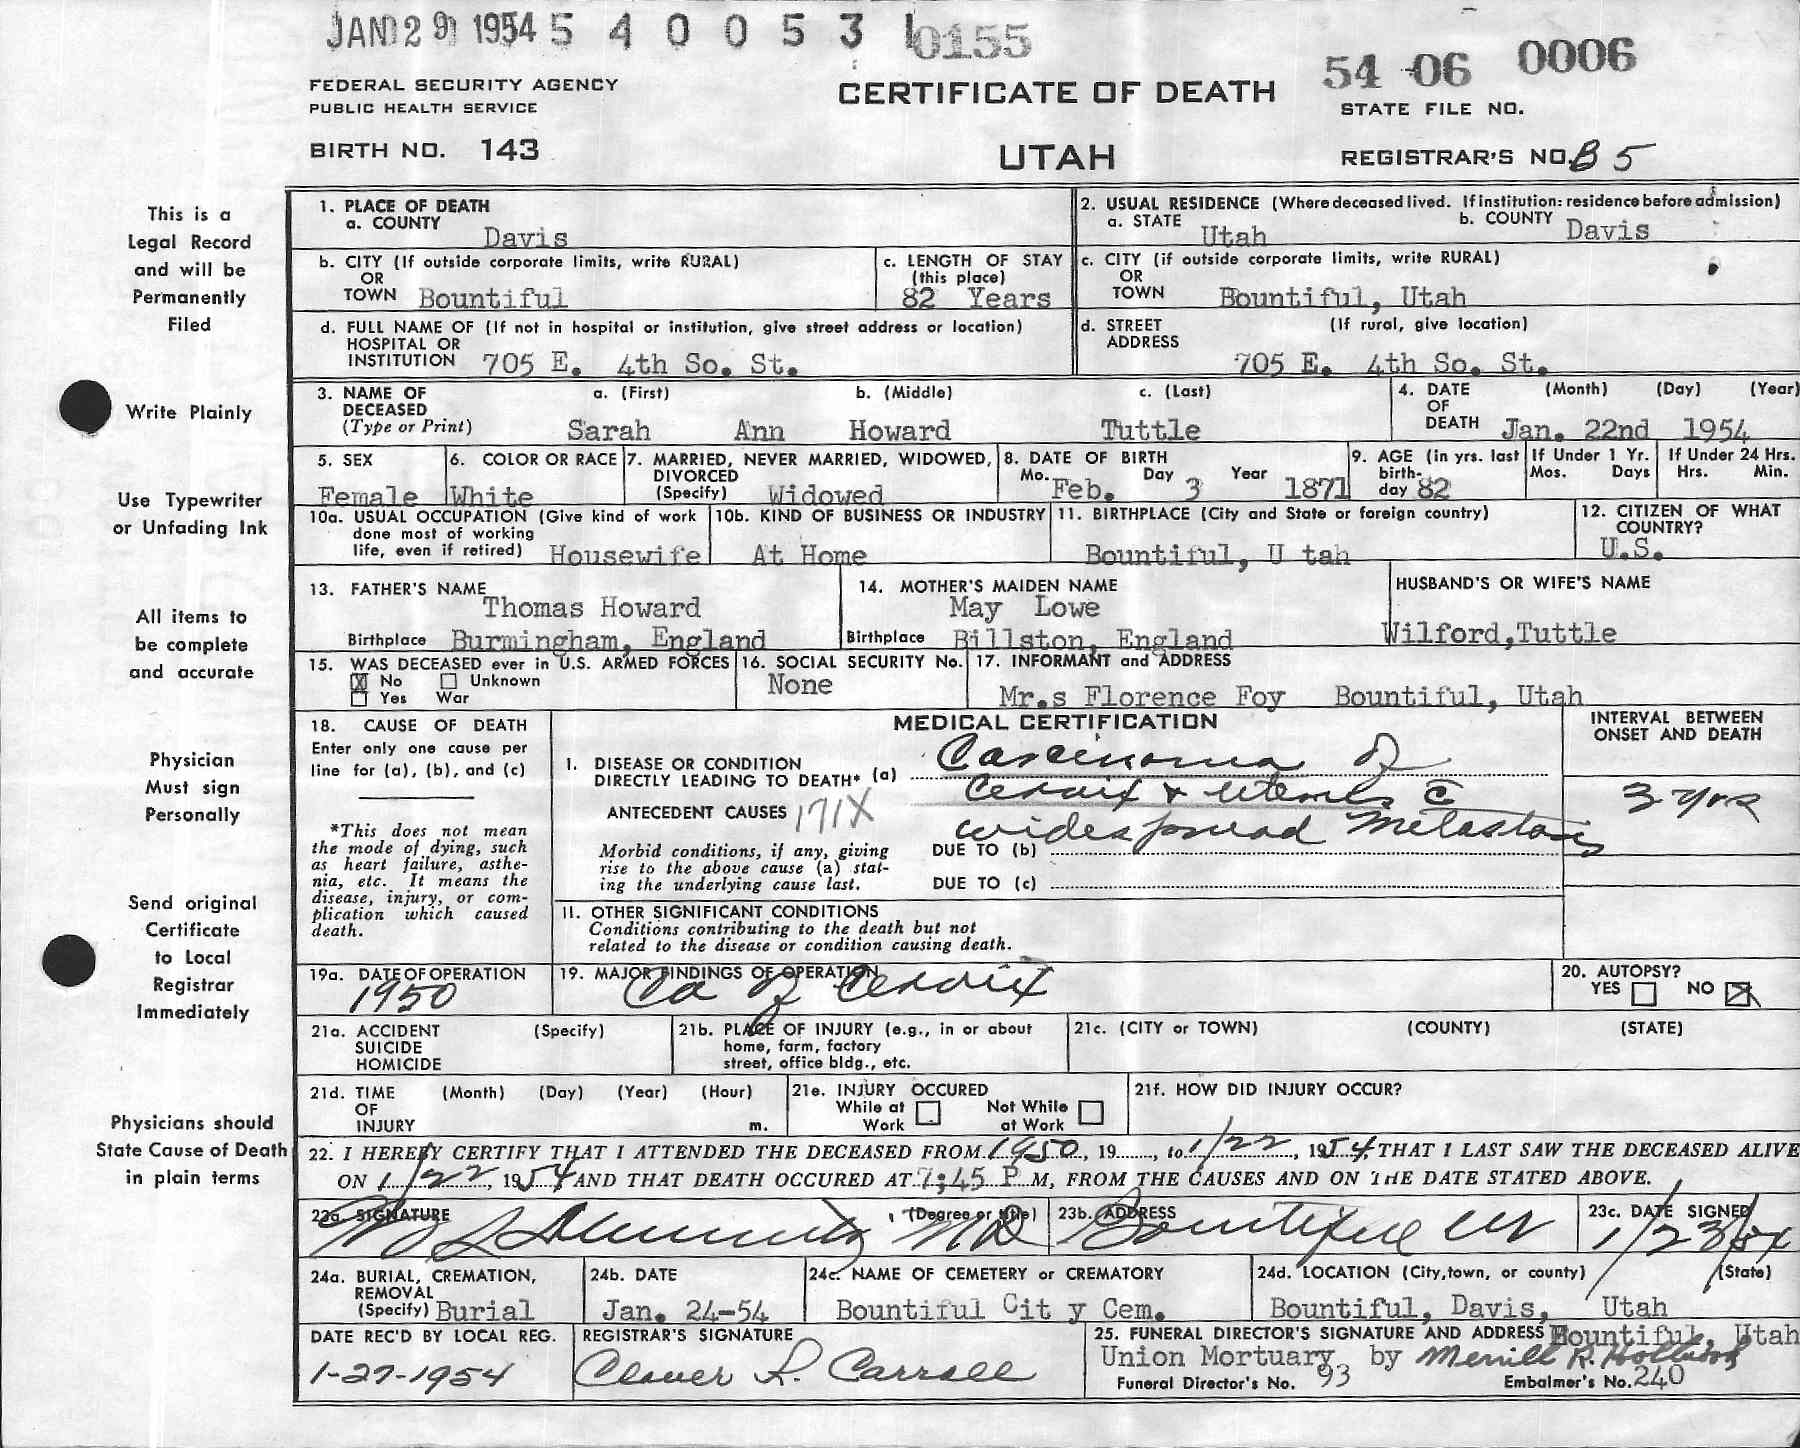 JAN 29 1954 5 4 0 0 5 3 0155
54 06 0006
FEDERAL SECURITY AGENCY
PUBLIC HEALTH SERVICE
CERTIFICATE OF DEATH
STATE FILE NO.
BIRTH NO. 143
UTAH
REGISTRAR'S NO. B 5
This is a
Legal Record
and will be
Permanently
Filed
Write Plainly
Use Typewriter
or Unfading Ink
All items to
be complete
and accurate
Physician
Must sign
Personally
Send original
Certificate
to Local
Registrar
Immediately
Physicians should
State Cause of Death
in plain terms
1. PLACE OF DEATH
a. COUNTY Davis
2. USUAL RESIDENCE (Where deceased lived. If institution: residence before admission)
a. STATE Utah b. COUNTY Davis
b. CITY (If outside corporate limits, write RURAL)
OR
TOWN Bountiful
c. LENGTH OF STAY
(this place)
82 Years
c. CITY (if outside corporate limits, write RURAL)
OR
TOWN Bountiful, Utah
d. FULL NAME OF (If not in hospital or institution, give street address or location)
HOSPITAL OR
INSTITUTION 705 E. 4th So. St.
d. STREET (If rural, give location)
ADDRESS
705 E. 4th So. St.
3. NAME OF a. (First) b. (Middle) c. (Last)
DECEASED
(Type or Print) Sarah Ann Howard Tuttle
4. DATE (Month) (Day) (Year)
OF
DEATH Jan. 22nd 1954
5. SEX
Female
6. COLOR OR RACE
White
7. MARRIED, NEVER MARRIED, WIDOWED,
DIVORCED
(Specify) Widowed
8. DATE OF BIRTH
Mo. Day Year
Feb. 3 1871
9. AGE (in yrs. last
birth-
day 82
If Under 1 Yr.
Mos. Days
If Under 24 Hrs.
Hrs. Min.
10a. USUAL OCCUPATION (Give kind of work
done most of working
life, even if retired) Housewife
10b. KIND OF BUSINESS OR INDUSTRY
At Home
11. BIRTHPLACE (City and State or foreign country)
Bountiful, U tah
12. CITIZEN OF WHAT
COUNTRY?
U.S.
13. FATHER'S NAME
Thomas Howard
Birthplace Burmingham, England
14. MOTHER'S MAIDEN NAME
May Lowe
Birthplace Billston, England
HUSBAND'S OR WIFE'S NAME
Wilford,Tuttle
15. WAS DECEASED ever in U.S. ARMED FORCES
X No Unknown
Yes War
16. SOCIAL SECURITY No.
None
17. INFORMANT and ADDRESS
Mr.s Florence Foy Bountiful, Utah
18. CAUSE OF DEATH
Enter only one cause per
line for (a), (b), and (c)
*This does not mean
the mode of dying, such
as heart failure, asthe-
nia, etc. It means the
disease, injury, or com-
plication which caused
death.
MEDICAL CERTIFICATION
INTERVAL BETWEEN
ONSET AND DEATH
I. DISEASE OR CONDITION
DIRECTLY LEADING TO DEATH* (a) Carcinoma of
cervix + uterus c̄
widespread metastasis
3 yrs
ANTECEDENT CAUSES 171X
Morbid conditions, if any, giving
rise to the above cause (a) stat-
ing the underlying cause last.
DUE TO (b)
DUE TO (c)
II. OTHER SIGNIFICANT CONDITIONS
Conditions contributing to the death but not
related to the disease or condition causing death.
19a. DATE OF OPERATION
1950
19. MAJOR FINDINGS OF OPERATION
Ca of Cervix
20. AUTOPSY?
YES NO X
21a. ACCIDENT (Specify)
SUICIDE
HOMICIDE
21b. PLACE OF INJURY (e.g., in or about
home, farm, factory
street, office bldg., etc.
21c. (CITY or TOWN) (COUNTY) (STATE)
21d. TIME (Month) (Day) (Year) (Hour)
OF
INJURY m.
21e. INJURY OCCURED
While at Work Not While at Work
21f. HOW DID INJURY OCCUR?
22. I HEREBY CERTIFY THAT I ATTENDED THE DECEASED FROM 1950, 19......, to 1/22, 1954, THAT I LAST SAW THE DECEASED ALIVE
ON 1/22, 1954 AND THAT DEATH OCCURED AT 7;45 P M, FROM THE CAUSES AND ON THE DATE STATED ABOVE.
23a. SIGNATURE (Degree or title)
MD
23b. ADDRESS
Bountiful Ut
23c. DATE SIGNED
1/23/54
24a. BURIAL, CREMATION,
REMOVAL
(Specify) Burial
24b. DATE
Jan. 24-54
24c. NAME OF CEMETERY or CREMATORY
Bountiful Cit y Cem.
24d. LOCATION (City, town, or county) (State)
Bountiful, Davis, Utah
DATE REC'D BY LOCAL REG.
1-27-1954
REGISTRAR'S SIGNATURE
Carroll
25. FUNERAL DIRECTOR'S SIGNATURE AND ADDRESS Bountiful, Utah
Union Mortuary, by Merrill R. Holbrook
Funeral Director's No. 93 Embalmer's No. 240